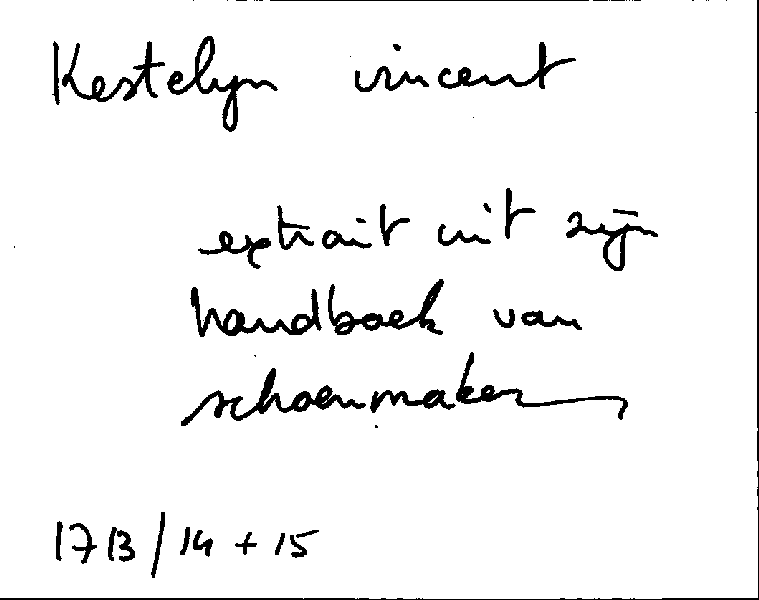 Kestelyn vincent
extrait uit zijn
handboek van
schoenmaker
1713/14 + 15